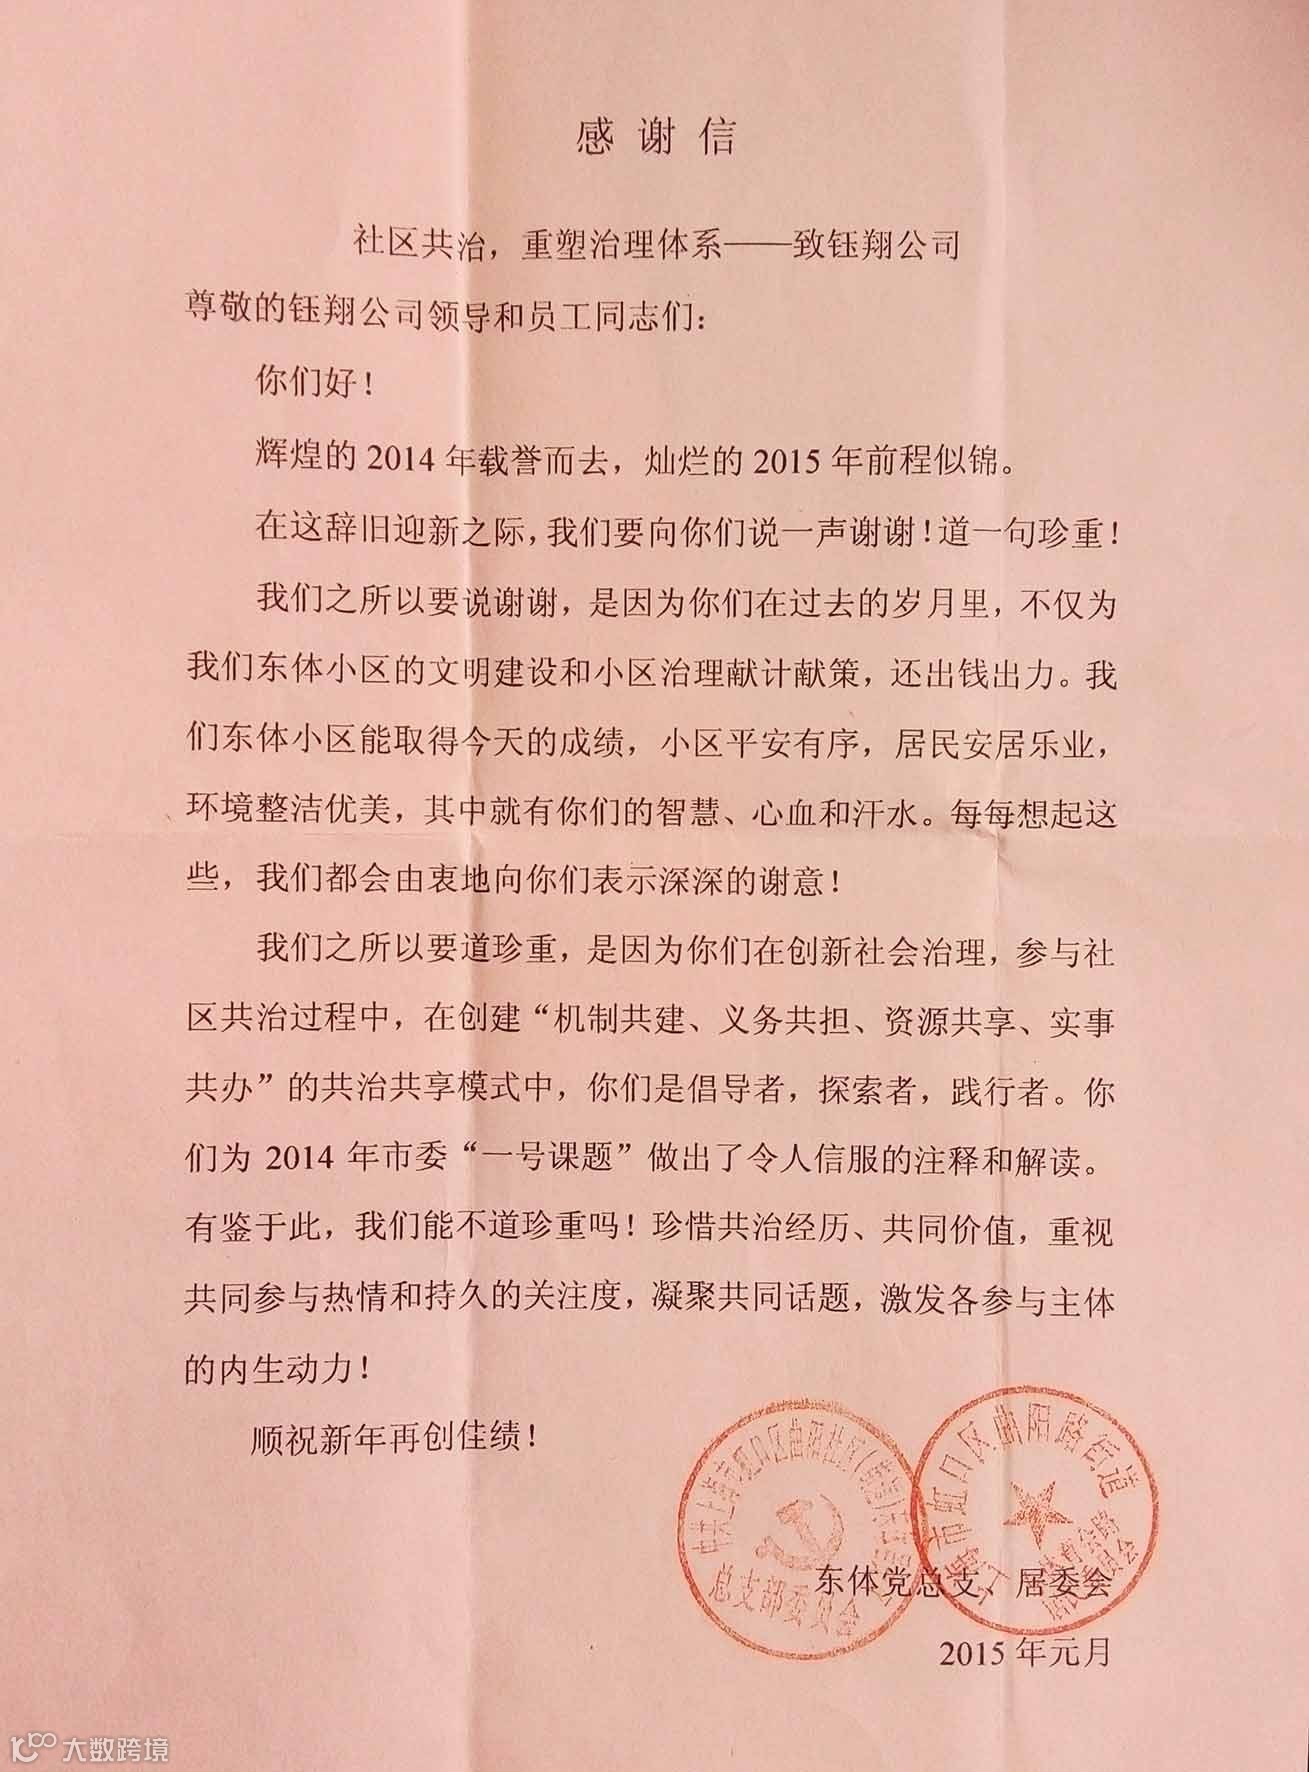 感谢信
社区共治，重塑治理体系——致钰翔公司
尊敬的钰翔公司领导和员工同志们：
你们好！
辉煌的 2014 年载誉而去，灿烂的 2015 年前程似锦。
在这辞旧迎新之际，我们要向你们说一声谢谢！道一句珍重！
我们之所以要说谢谢，是因为你们在过去的岁月里，不仅为
我们东体小区的文明建设和小区治理献计献策，还出钱出力。我
们东体小区能取得今天的成绩，小区平安有序，居民安居乐业，
环境整洁优美，其中就有你们的智慧、心血和汗水。每每想起这
些，我们都会由衷地向你们表示深深的谢意！
我们之所以要道珍重，是因为你们在创新社会治理，参与社
区共治过程中，在创建“机制共建、义务共担、资源共享、实事
共办”的共治共享模式中，你们是倡导者，探索者，践行者。你
们为 2014 年市委“一号课题”做出了令人信服的注释和解读。
有鉴于此，我们能不道珍重吗！珍惜共治经历、共同价值，重视
共同参与热情和持久的关注度，凝聚共同话题，激发各参与主体
的内生动力！
顺祝新年再创佳绩！
中共上海市虹口区曲阳社区（街道）
总支部委员会
上海市虹口区曲阳路街道
东体党总支、居委会
2015 年元月
大数跨境